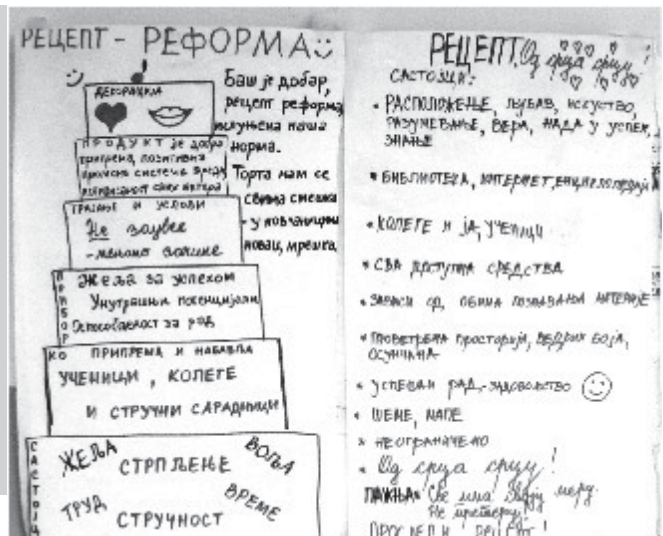 РЕЦЕПТ - РЕФОРМА
ДЕКОРАЦИЈА
ПРОДУКТ је добра
припрема, позитивна
промена система вредн.
ТРАЈАЊЕ И УСЛОВИ
Не заувек
-мењамо
ПРИБОР
Жеља за успехом
Унутрашњи потенцијали
Оспособљеност за рад
КО ПРИПРЕМА И НАБАВЉА
УЧЕНИЦИ, КОЛЕГЕ
И СТРУЧНИ САРАДНИЦИ
САСТОЈЦ
ЖЕЉА СТРПЉЕЊЕ ВОЉА
ТРУД ВРЕМЕ
СТРУЧНОСТ
Баш је добар,
рецепт реформа,
испуњена наша
норма.
Торта нам се
свима смешка
- у новчанику
новац, мрешка,
РЕЦЕПТ Од срца срцу!
САСТОЈЦИ:
• РАСПОЛОЖЕЊЕ, ЉУБАВ, ИСКУСТВО,
РАЗУМЕВАЊЕ, ВЕРА, НАДА У УСПЕХ,
ЗНАЊЕ
• БИБЛИОТЕКА, ИНТЕРНЕТ, ЕНЦИКЛОПЕДИЈЕ
• КОЛЕГЕ И ЈА, УЧЕНИЦИ
• СВА ДОСТУПНА СРЕДСТВА
• ЗАВИСИ ОД ОБИМА ПОЗНАВАЊА МАТЕРИЈЕ
• ПРОВЕТРЕНА просторија, ВЕДРИХ БОЈА,
ОСУНЧАНА
• УСПЕШАН РАД - ЗАДОВОЉСТВО
• ШЕМЕ, МАПЕ
• НЕОГРАНИЧЕНО
• Од срца срцу!
ПАЖЊА Све има своју меру.
Не претеруј!
ПРОСЛЕДИ РЕЦЕПТ!